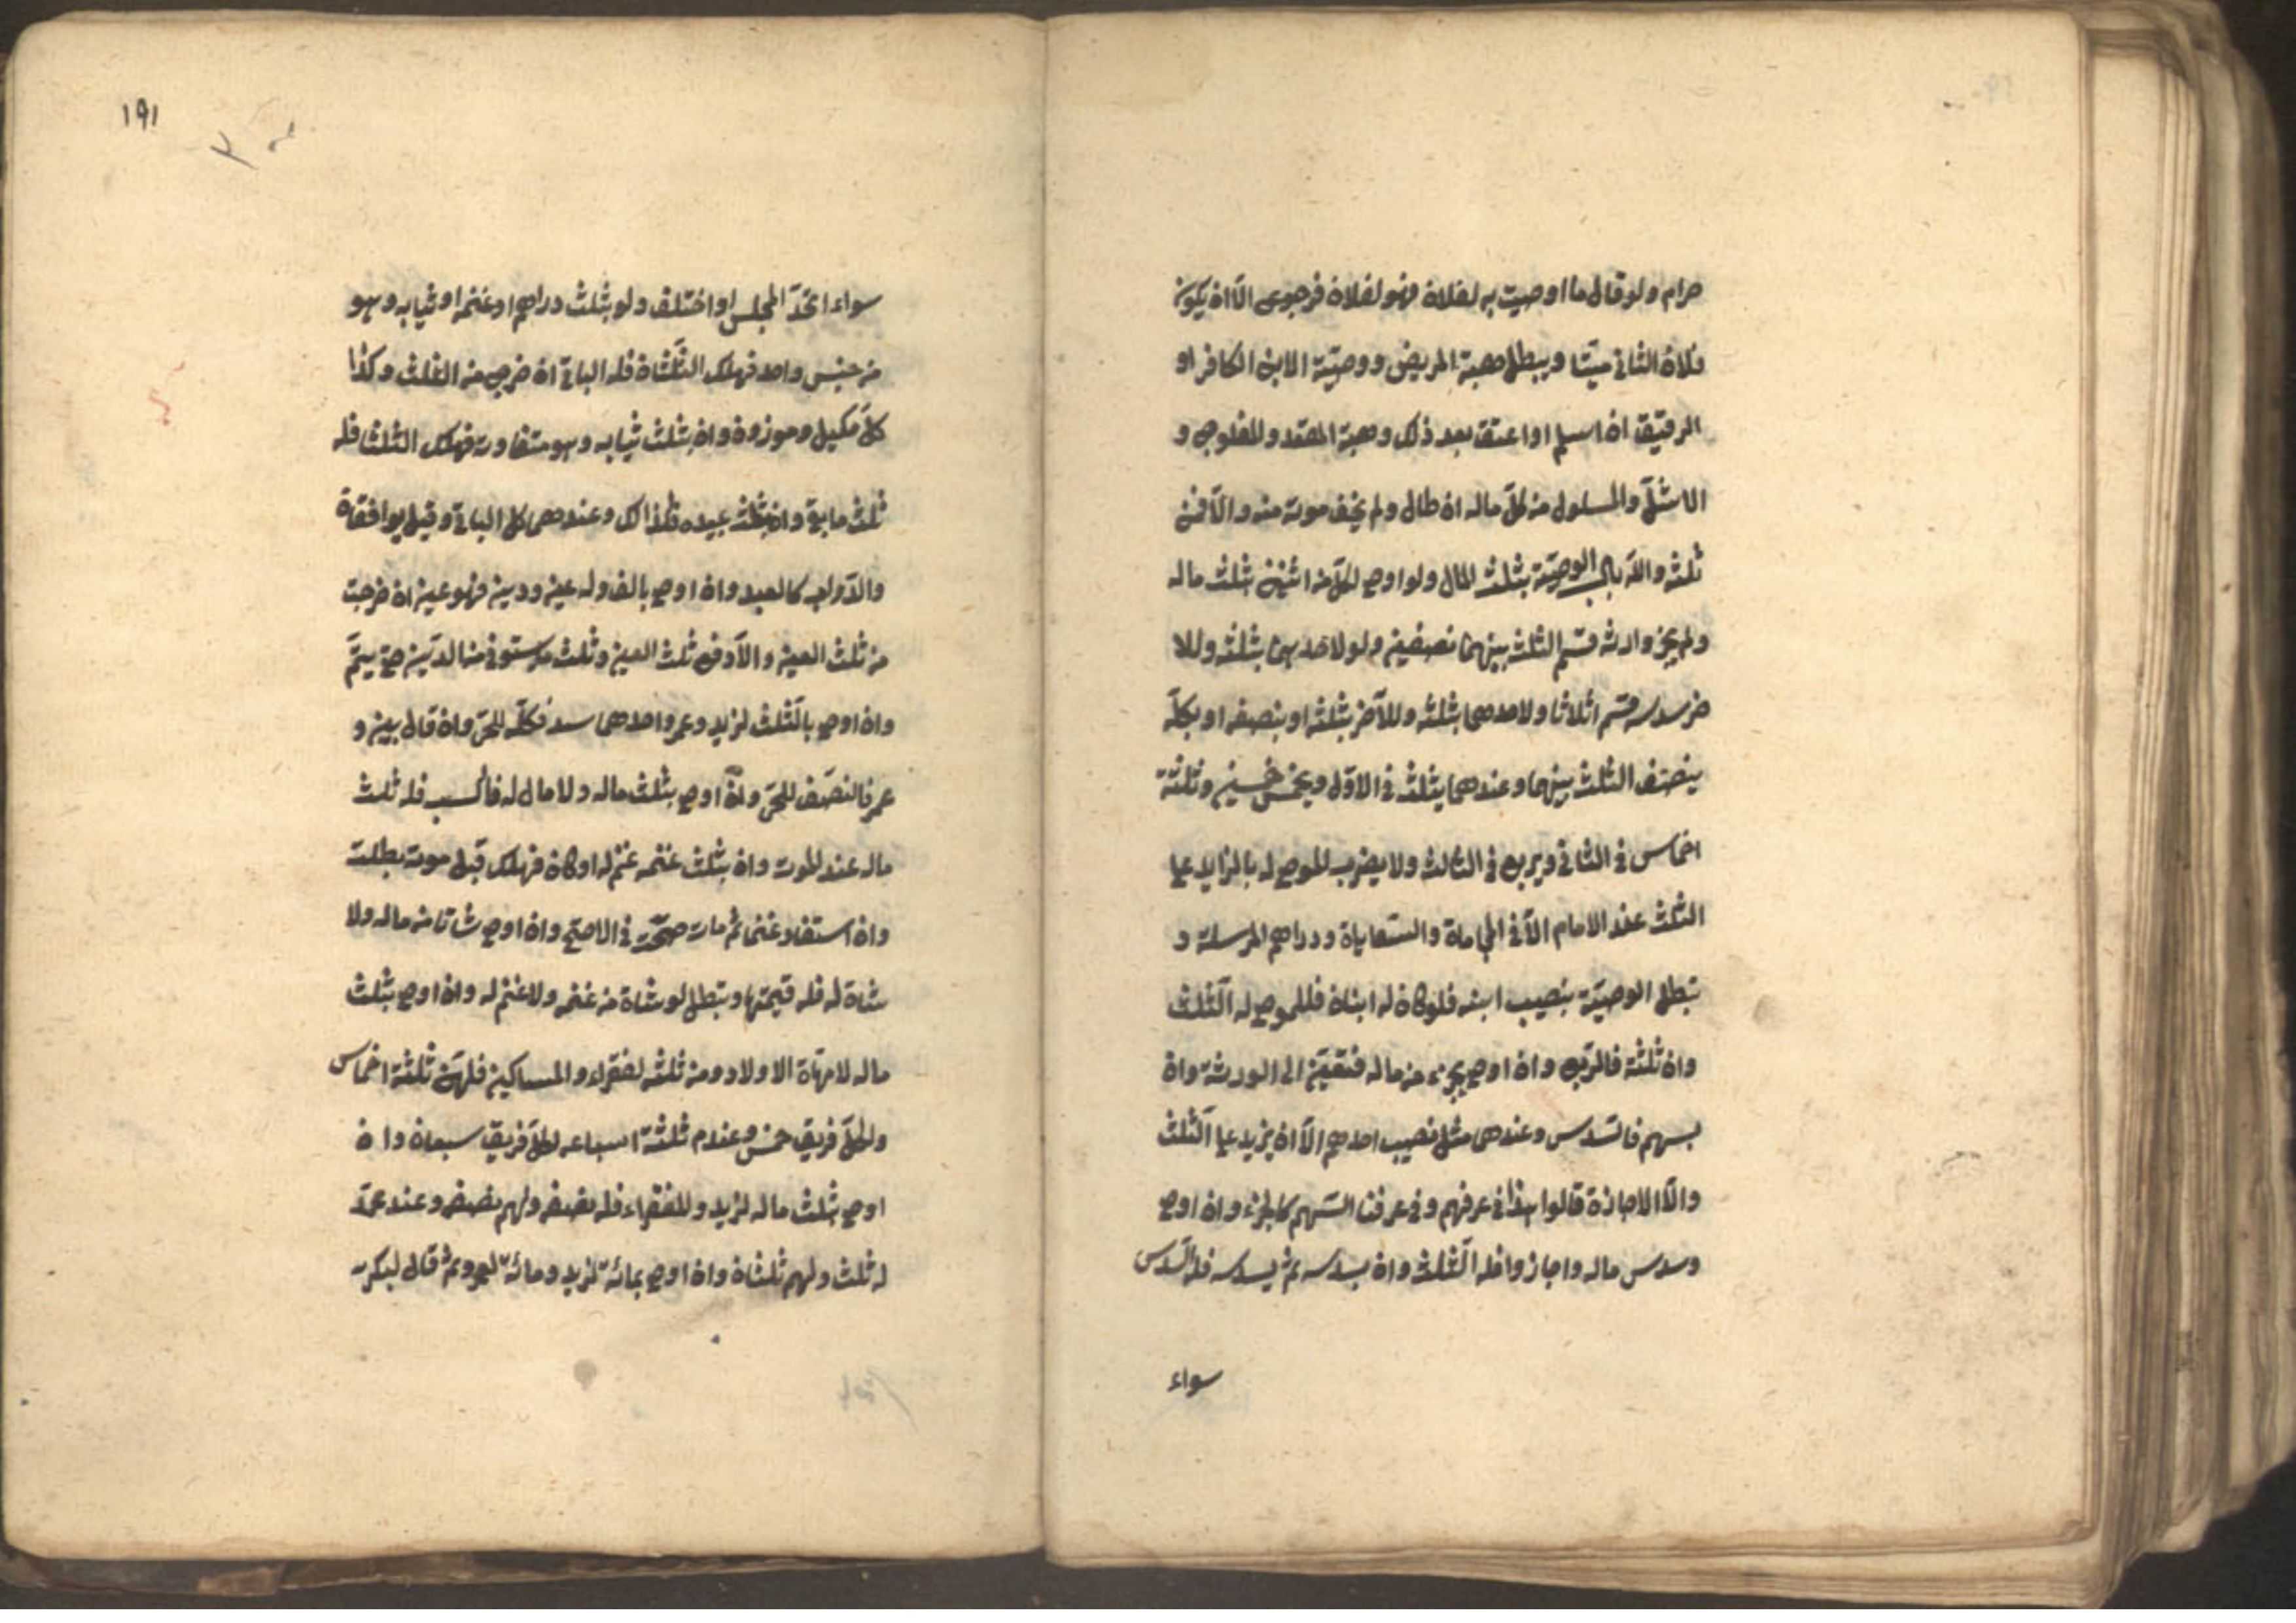 حرام ولو قال ما اوصيت به لفلان فهو لفلان فرجوع الا ان يكون
فلان الثانى ميتا ويبطل هبة المريض ووصيته لابنه الكافر او
الرقيق ان اسلم او اعتق بعد ذلك وهبة المقعد والمفلوج و
الاشلّ والمسلول من كلّ ماله ان طال ولم يخف موته منه والّا فمن
ثلثه والله باب الوصيّة بثلث المال ولو اوصى لكلّ من اثنين بثلث ماله
ولم يجز وارثه قسّم الثلث بينهما نصفين ولو لاحدهما بثلثه وللا
خر بسدسه قسّم اثلاثا ولاحدهما بثلثه وللآخر بثلثه او بنصفه او بكلّه
ينصّف الثلث بينهما وعندهما يثلث فى الاوّل ويخمس خمسين وثلثة
اخماس فى الثانى ويربع فى الثالث ولا يضرب الموصى له بالزايد على
الثلث عند الامام الّا فى المحاباة والسّعاية ودراهم المرسلة و
تبطل الوصيّة بنصيب ابنه فلو كان له ابنان فللموصى له الثّلث
وان ثلثة فالرّبع وان اوصى بجزء من ماله فتعيّن الى الورثة وان
بسهم فالسّدس وعندهما مثل نصيب احدهم الّا ان يزيد على الثّلث
والّا الاجازة قالوا هذا فى عرفهم وفى عرفنا السّهم كالجزء وان اوصى
وسدس ماله واجازوا فله الثّلث وان بسدسه ثم بسدسه فله السّدس
سواء
١٩١
سواء اتحدّ المجلس او اختلف ولو بثلث دراهم او غنمه او ثيابه وهو
من جنس واحد فهلك الثلثان فله الباقى ان خرج من الثلث وكذا
كلّ مكيل وموزون وان بثلث ثيابه وهو متفاوت فهلك الثلثا فله
ثلث ما بقى وان بثلث عبيده فكذالك وعندهما كل الباقى وقيل يوافقه
والدّواب كالعبيد وان اوصى بالف وله عين ودين فهو عين ان خرجت
من ثلث العين والّا دفع ثلث العين وثلث ما يستوفى من الدّين حتى يتمّ
وان اوصى بالثّلث لزيد وعمرو احدهما فكلّه للحىّ وان قال بين و
عمر فالنصف للحىّ وان اوصى بثلث ماله ولا مال له فاكتسب فله ثلث
ماله عند الموت وان بثلث غنمه ولا غنم له او كان فهلك قبل موته بطلت
وان استفاد غنما ثم مات صحّت فى الاصحّ وان اوصى شاتا من ماله ولا
شاة له فله قيمتها وتبطل لو شاة من غنمه ولا غنم له وان اوصى بثلث
ماله لامهاة الاولاد ومن ثلثه لفقراء والمساكين فلهنّ ثلثة اخماس
ولكلّ فريق خمس وعند م ثلثة اسباعه لكلّ فريق سبعان وا ن
اوصى بثلث ماله لزيد وللفقراء فله نصفه ولهم نصفه وعند محمّد
له ثلث ولهم ثلثان وان اوصى بمائة لزيد ومائة لعمرو ثم قال لبكر